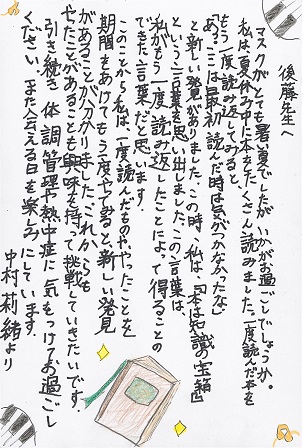 後藤先生へ
マスクがとても暑い夏でしたが、いかがお過ごしでしょうか。
私は、夏休み中に本をたくさん読みました。一度読んだ本を
もう一度読み返してみると、
「あっ、ここは最初読んだ時は気がつかなかったな」
と新しい発見がありました。この時、私は、「本は知識の宝箱」
という言葉を思い出しました。この言葉は、
私がもう一度読み返したことによって得ることの
できた言葉だと思います。
このことから私は、一度読んだものややったことを
期間をあけてもう一度やってみると、新しい発見
があることが分かりました。これからも
やったことがあることも興味を持って挑戦していきたいです。
引き続き体調管理や熱中症に気をつけてお過ごし
ください。また会える日を楽しみにしています。
中村莉緒より